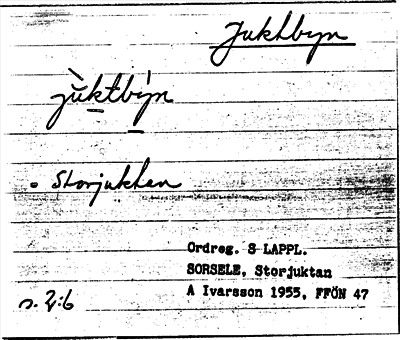 Jukhbyn
jùktbýn
= Storjukhen
Ordreg. S LAPPL.
SORSELE, Storjuktan
A Ivarsson 1955, FFÖN 47
s. 2:6